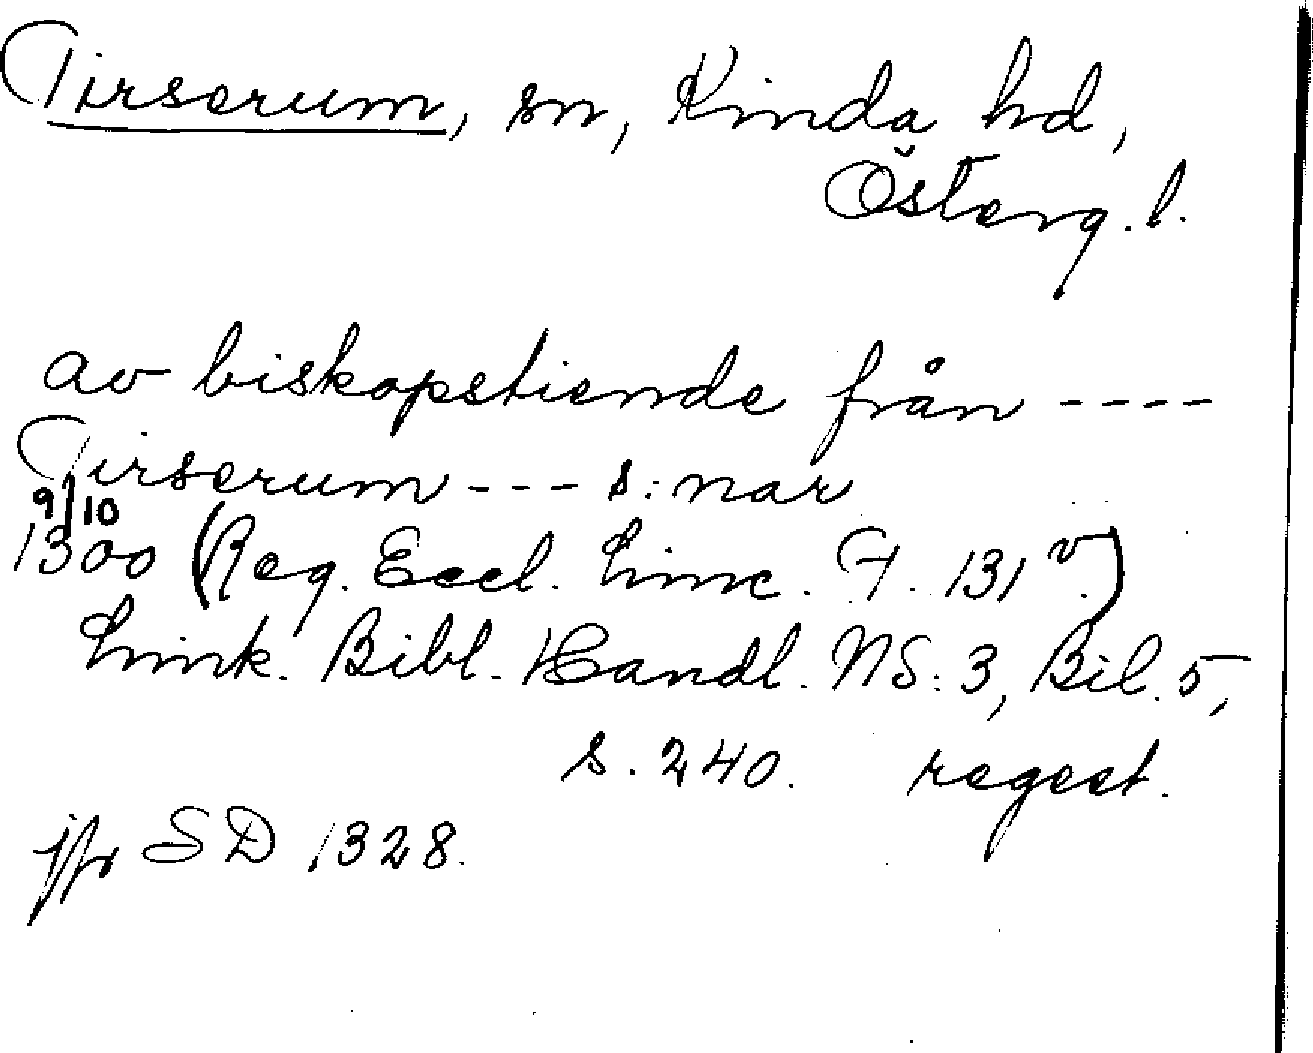 Tirserum, sn, Kinda hd,
Österg. l.
av biskopstiende från ----
Tirserum --- s:nar
9/10
1300 (Reg. Eccl. Linc. F. 131 v.)
Link. Bibl. Handl. NS: 3, Bil. 5,
s. 240. regest.
jfr SD 1328.